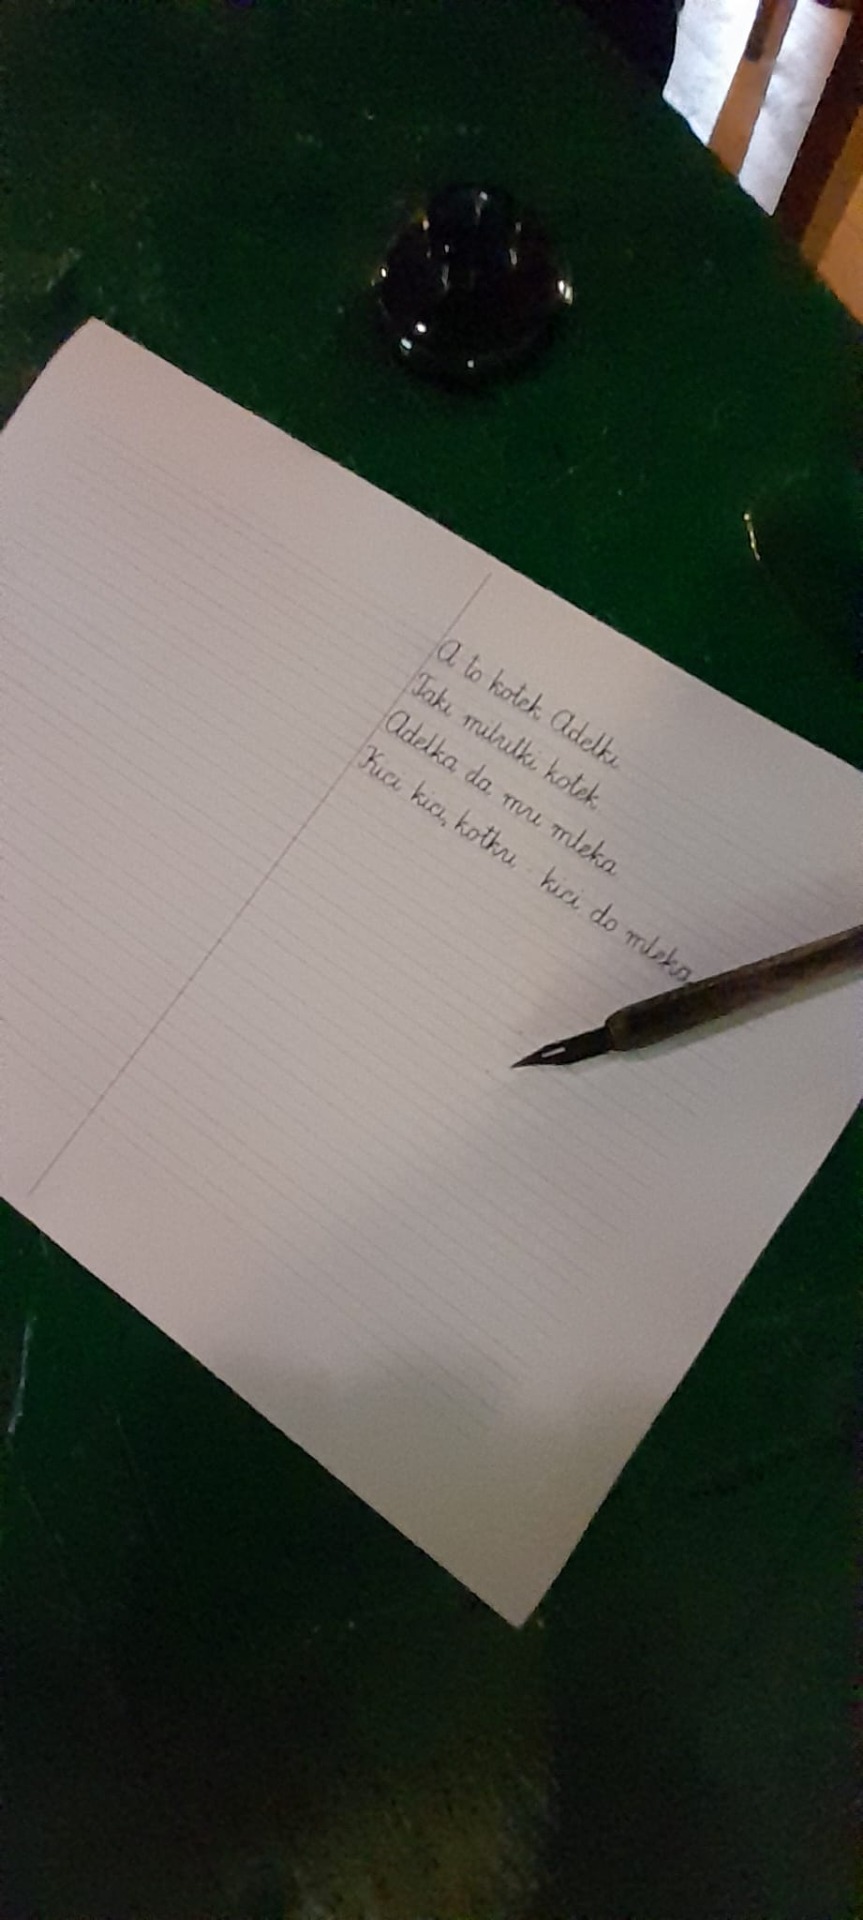 A to kotek Adelki
Taki milutki kotek
Adelka da mu mleka
Kici kici, kotku - kici do mleka